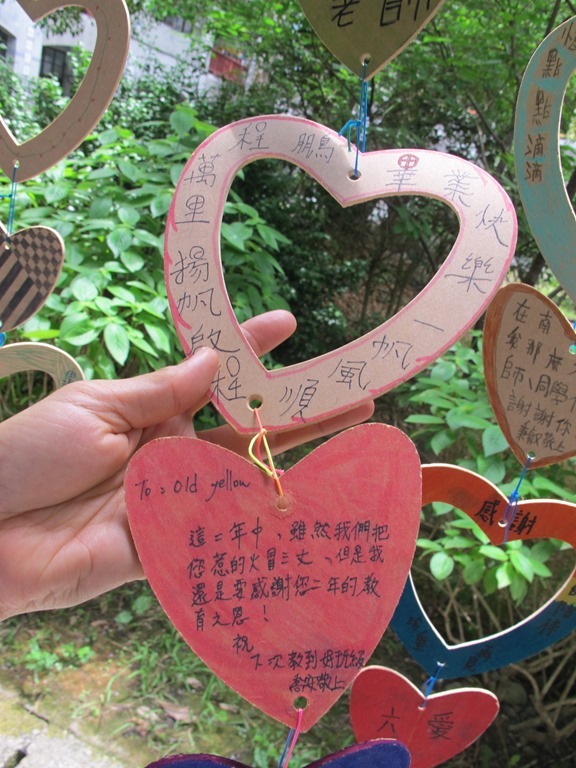 老師
鵬程萬里
揚帆啟程
畢業快樂
一帆風順
To: Old yellow
這二年中，雖然我們把
您惹的火冒三丈，但是我
還是要感謝您二年的教
育之恩！
祝
下次教到好班級
敬上
點點滴滴
在南
那麼
師、同學
謝謝你
敬上
感謝
六愛